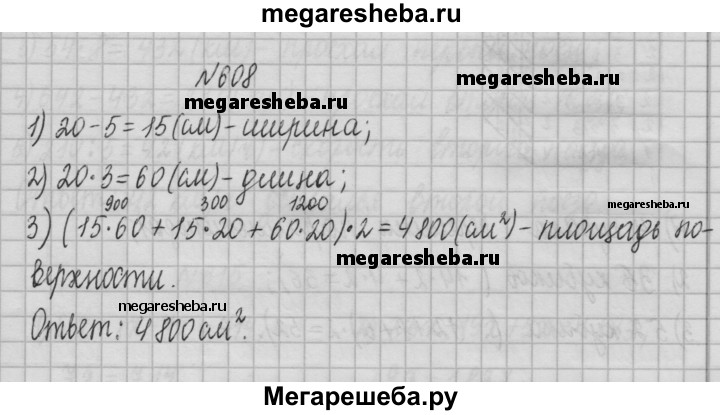 megaresheba.ru
№608
megaresheba.ru
megaresheba.ru
1) 20-5=15(см)-ширина;
2) 20·3=60(см)-длина;
900 300 1200
megaresheba.ru
3) (15·60+15·20+60·20)·2=4800(см²)-площадь по-
megaresheba.ru
верхности.
megaresheba.ru
Ответ: 4800см².
Мегарешеба.ру